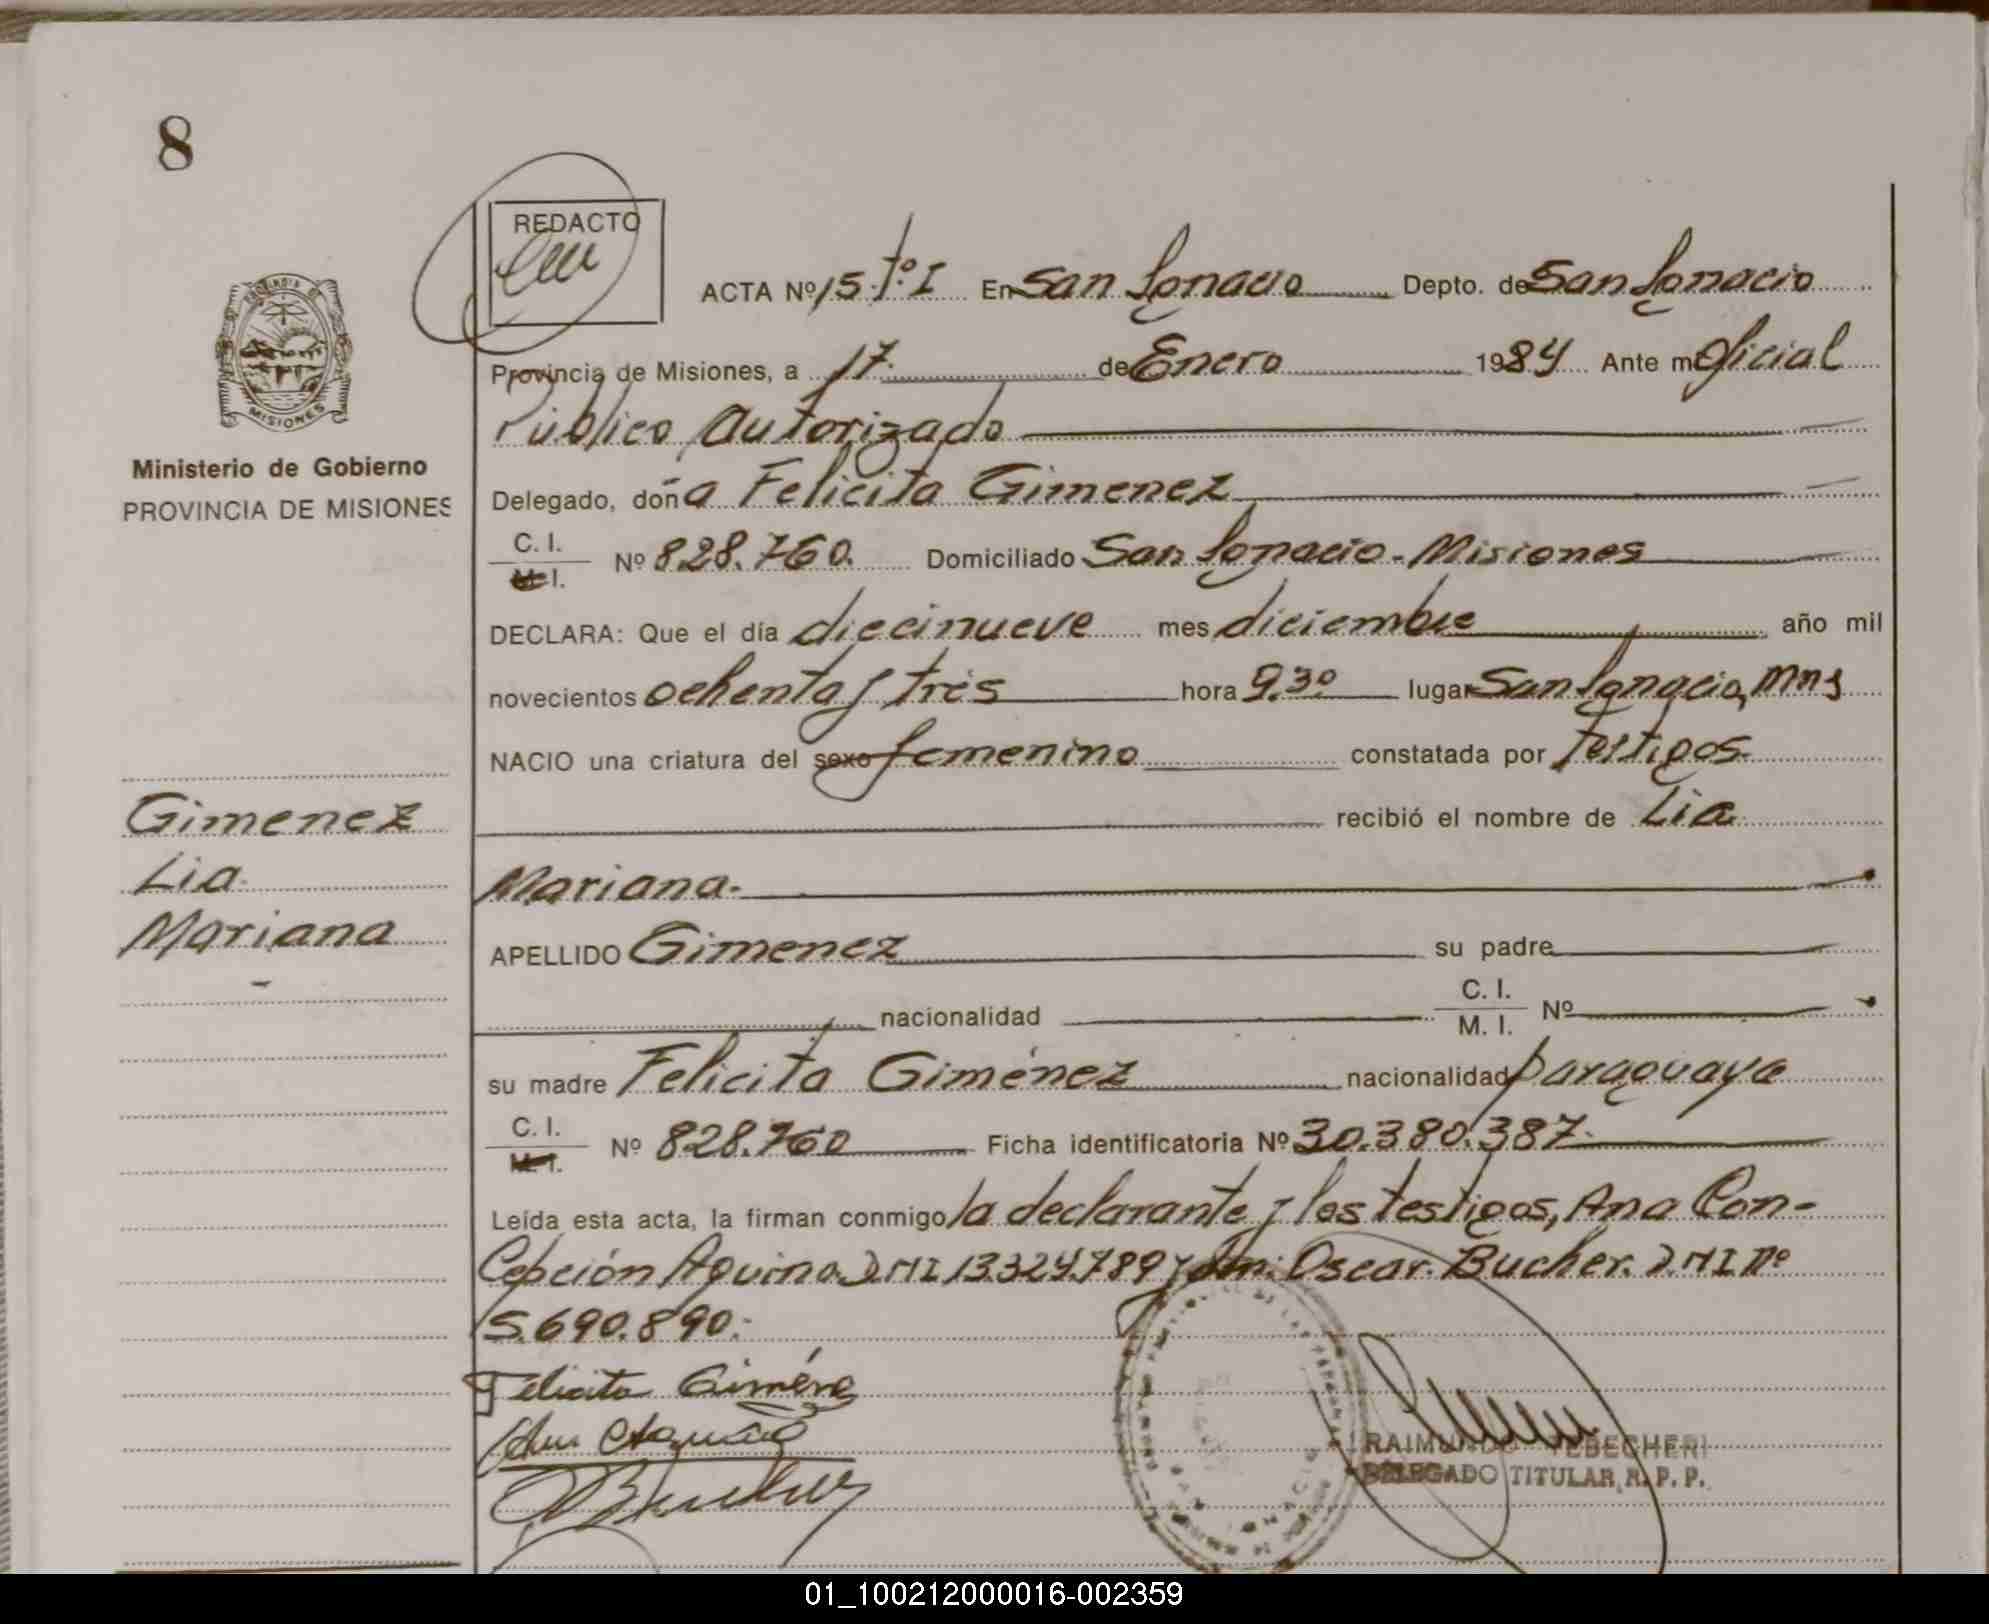 8
REDACTO
ACTA Nº 15 tº I En San Ignacio Depto. de San Ignacio
Provincia de Misiones, a 17 de Enero 1984 Ante mí Oficial
Público Autorizado
MISIONES
Ministerio de Gobierno
PROVINCIA DE MISIONES
Delegado, doña Felicita Gimenez
C. I. M. I. Nº 828.760. Domiciliado San Ignacio - Misiones
DECLARA: Que el día diecinueve mes diciembre año mil
novecientos ochenta y tres hora 9.30 lugar San Ignacio, Mns
NACIO una criatura del sexo femenino constatada por testigos.
recibió el nombre de Lia
Mariana.
Gimenez
Lia
Mariana
APELLIDO Gimenez su padre
nacionalidad C. I. M. I. Nº
su madre Felicita Giménez nacionalidad paraguaya
C. I. M. I. Nº 828.760 Ficha identificatoria Nº 30.380.387.
Leída esta acta, la firman conmigo la declarante y los testigos, Ana Con-
cepción Aquino D.N.I 13.324.789 y Oscar Bucher. D.N.I Nº
5.690.890.
Felicita Giménez
RAIMUNDO YEBECHERI
DELEGADO TITULAR R. P. P.
01_100212000016-002359